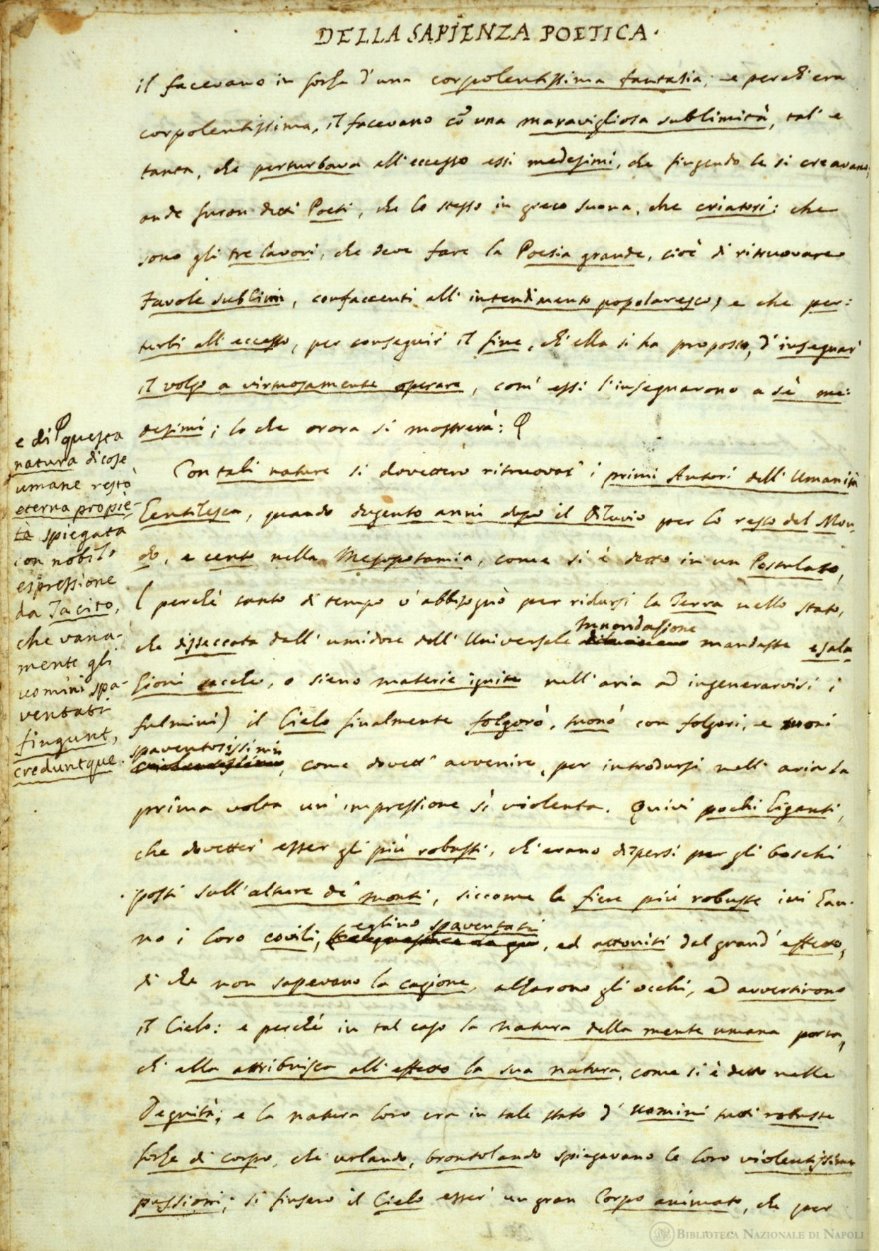 DELLA SAPIENZA POETICA.
il facevano in forza d'una corpolentissima fantasia; e perch'era
corpolentissima, il facevano cō una maravigliosa sublimità, tal' e
tanta, che perturbava all'eccesso essi medesimi, che fingendo le si creavano,
onde furon detti Poeti, che lo stesso in greco suona, che criatori: che
sono gli tre lavori, che deve fare la Poesia grande, cioè di ritruovare
Favole sublimi, confaccenti all'intendimento popolaresco, e che per-
turbi all'eccesso, per conseguir' il fine, ch'ella si ha proposto, d'insegnar'
il volgo a virtuosamente operare, com' essi l'insegnarono a sè me-
desimi; lo che orora si mostrerà:
e di questa
natura di cose
umane restò
eterna propie-
tà spiegata
con nobile
espressione
da Tacito,
che vana-
mente gli
uomini spa-
ventati
fingunt,
creduntque.
Con tali nature si dovettero ritruovar' i primi Autori dell'Umanità
Gentilesca, quando dugento anni dopo il Diluvio per lo resto del Mon-
do, e cento nella Mesopotamia, come si è detto in un Postulato,
(perchè tanto di tempo v'abbisognò per ridursi la Terra nello stato,
che disseccata dall'umidore dell'Universale innondazione mandasse esala-
gioni secche, o sieno materie ignite nell'aria ad ingenerarvisi i
fulmini) il Cielo finalmente folgorò, tuonò con folgori, e tuoni
spaventosissimi, come dovett' avvenire, per introdursi nell'aria la
prima volta un' impressione sì violenta. Quivi pochi Giganti,
che dovetter' esser gli più robusti, ch'erano dispersi per gli boschi
posti sull'alture de' monti, siccome le fiere più robuste ivi han-
no i loro covili, eglino spaventati, ed attoniti dal grand' effetto,
di che non sapevano la cagione, alzarono gli occhi, ed avvertirono
il Cielo: e perchè in tal caso la natura della mente umana porta,
ch'ella attribuisca all'effetto la sua natura, come si è detto nelle
Degnità; e la natura loro era in tale stato d' uomini tutti robuste
forze di corpo, che urlando, brontolando spiegavano le loro violentissime
passioni; si finsero il Cielo esser' un gran Corpo animato, che per
BIBLIOTECA NAZIONALE DI NAPOLI